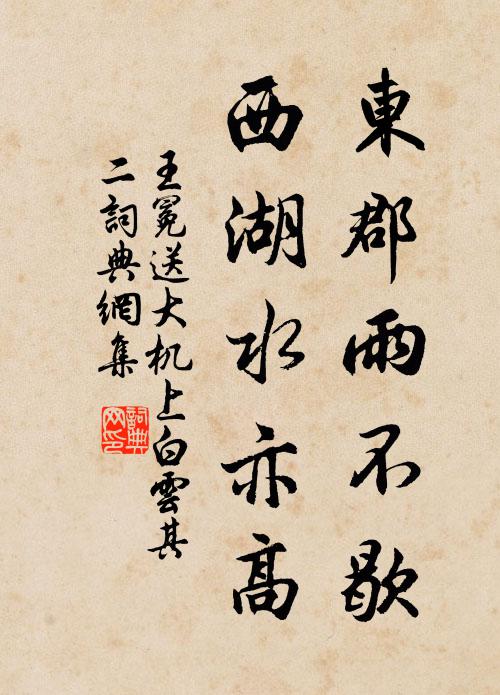 東郡雨不歇
西湖水亦高
王冕送大机上白雲其
二詞典網集
詞典
网印